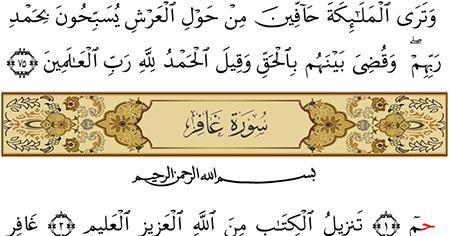 وَتَرَى ٱلْمَلَـٰٓئِكَةَ حَآفِّينَ مِنْ حَوْلِ ٱلْعَرْشِ يُسَبِّحُونَ بِحَمْدِ
رَبِّهِمْ ۖ وَقُضِىَ بَيْنَهُم بِٱلْحَقِّ وَقِيلَ ٱلْحَمْدُ لِلَّهِ رَبِّ ٱلْعَـٰلَمِينَ ﴿٧٥﴾
سُورَةُ غَافِرٍ
بسم الله الرحمن الرحيم
حمٓ ﴿١﴾ تَنزِيلُ ٱلْكِتَـٰبِ مِنَ ٱللَّهِ ٱلْعَزِيزِ ٱلْعَلِيمِ ﴿٢﴾ غَافِرِ